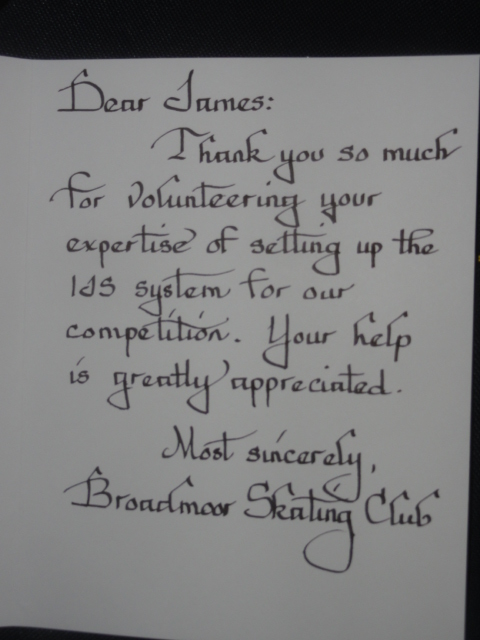 Dear James:
Thank you so much
for volunteering your
expertise of setting up the
IJS system for our
competition. Your help
is greatly appreciated.
Most sincerely,
Broadmoor Skating Club